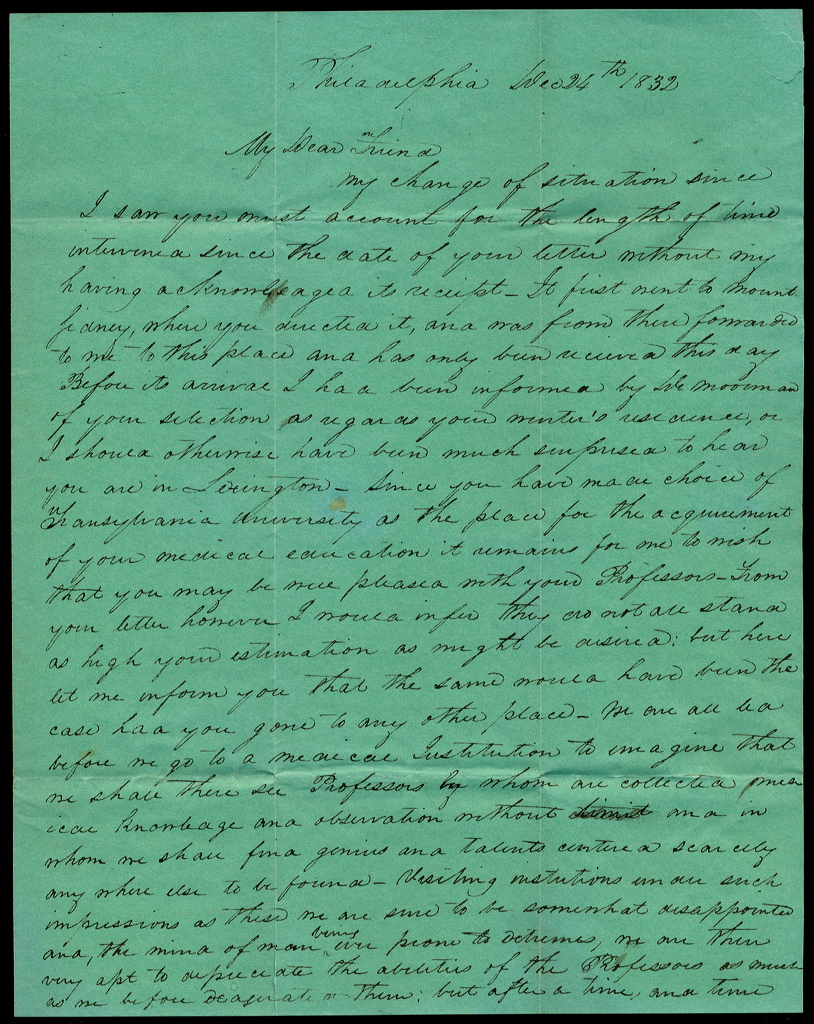 Philadelphia Dec 24th 1832
My Dear Friend
My change of situation since
I saw you must account for the length of time
intervened since the date of your letter without my
having acknowledged its receipt – It first went to Mount
Sidney, where you directed it, and was from there forwarded
to me to this place and has only been received this day
Before its arrival I had been informed by Dr Mooman
of your selection as regards your winter's residence, or
I should otherwise have been much surprised to hear
you are in Lexington – Since you have made choice of
Transylvania University as the place for the acquirement
of your medical education it remains for me to wish
that you may be well pleased with your Professors – From
your letter however I would infer they do not all stand
as high your estimation as might be desired: but here
let me inform you that the same would have been the
case had you gone to any other place – We are all led
before we go to a medical Institution to imagine that
we shall there see Professors by whom are collected med
ical knowledge and observation without and in
whom we shall find genius and talents centered scarcely
any where else to be found – Visiting institutions under such
impressions as these we are sure to be somewhat disappointed
and, the mind of man being ever prone to extremes, we are then
very apt to depreciate the abilities of the Professors as much
as we before them: but after a time, and a time